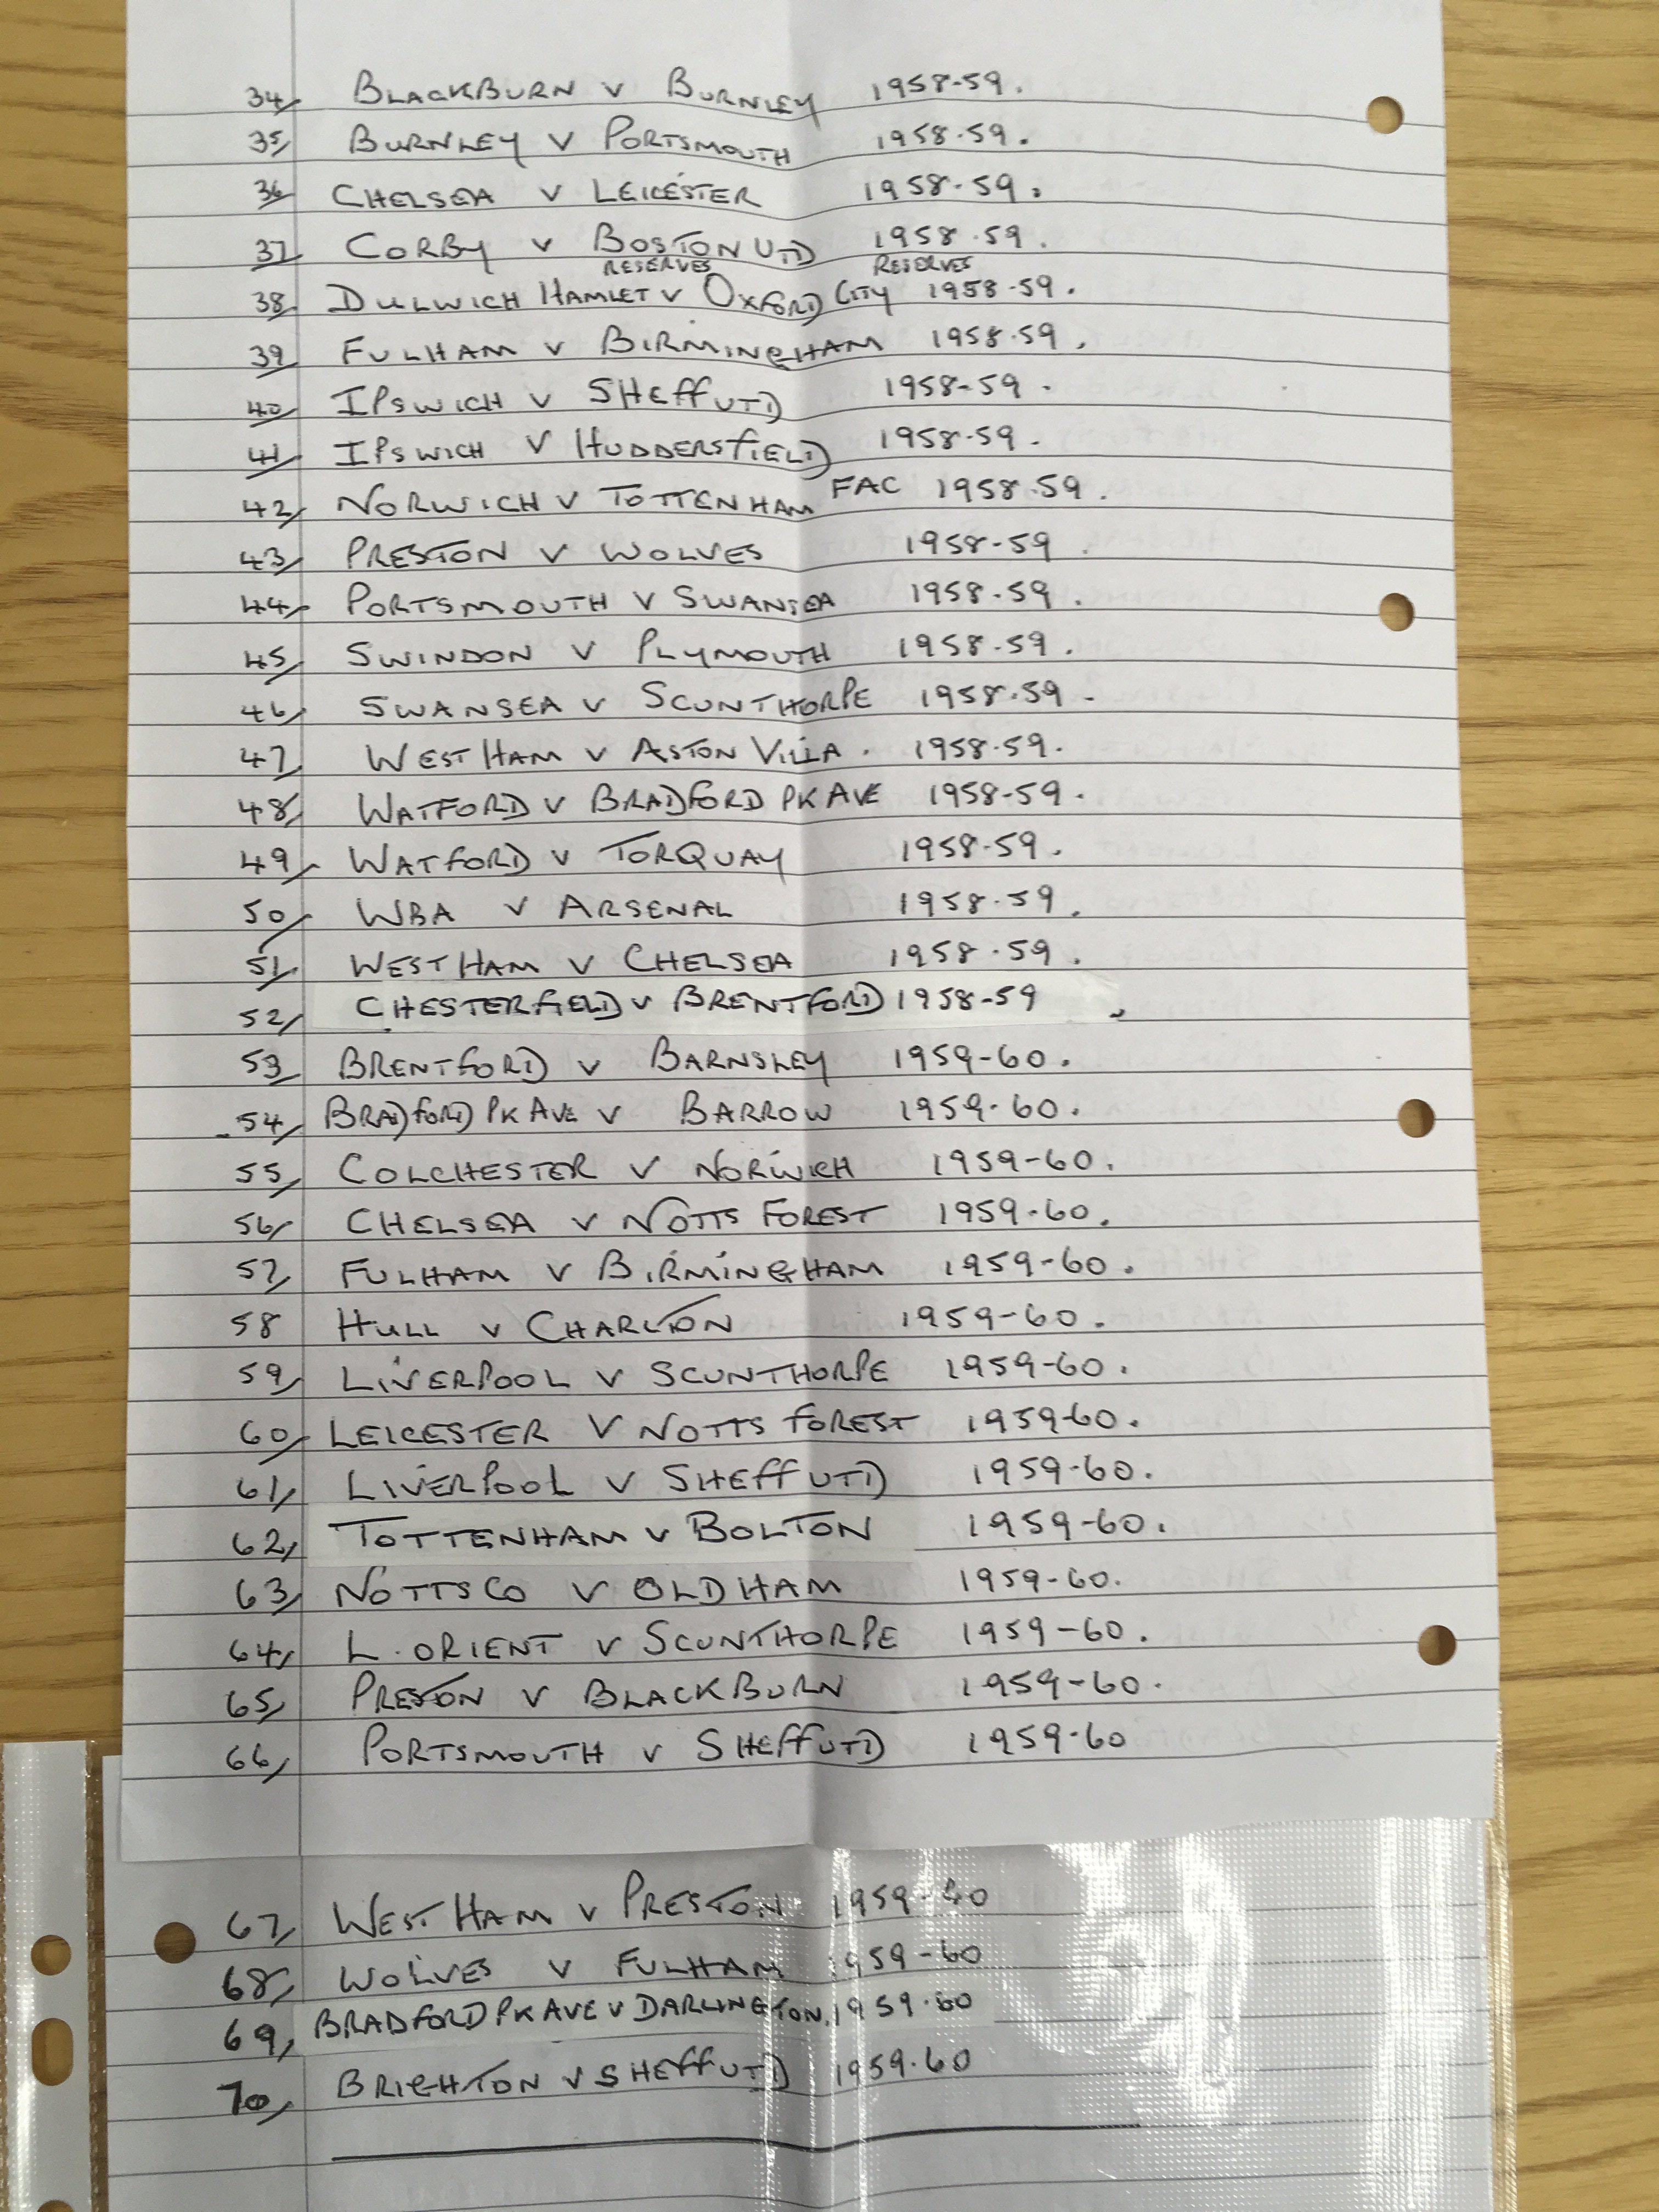 34/ BLACKBURN V BURNLEY 1958-59.
35/ BURNLEY V PORTSMOUTH 1958-59.
36/ CHELSEA V LEICESTER 1958-59.
37/ CORBY V BOSTON UTD 1958-59.
RESERVES RESERVES
38/ DULWICH HAMLET V OXFORD CITY 1958-59.
39/ FULHAM V BIRMINGHAM 1958-59.
40/ IPSWICH V SHEFF UTD 1958-59.
41/ IPSWICH V HUDDERSFIELD 1958-59.
42/ NORWICH V TOTTENHAM FAC 1958-59.
43/ PRESTON V WOLVES 1958-59.
44/ PORTSMOUTH V SWANSEA 1958-59.
45/ SWINDON V PLYMOUTH 1958-59.
46/ SWANSEA V SCUNTHORPE 1958-59-
47/ WEST HAM V ASTON VILLA. 1958-59.
48/ WATFORD V BRADFORD PK AVE 1958-59.
49/ WATFORD V TORQUAY 1958-59.
50/ WBA V ARSENAL 1958-59.
51/ WEST HAM V CHELSEA 1958-59.
52/ CHESTERFIELD V BRENTFORD 1958-59
53/ BRENTFORD V BARNSLEY 1959-60.
54/ BRADFORD PK AVE V BARROW 1959-60.
55/ COLCHESTER V NORWICH 1959-60.
56/ CHELSEA V NOTTS FOREST 1959-60.
57/ FULHAM V BIRMINGHAM 1959-60.
58 HULL V CHARLTON 1959-60.
59/ LIVERPOOL V SCUNTHORPE 1959-60.
60/ LEICESTER V NOTTS FOREST 1959-60.
61/ LIVERPOOL V SHEFF UTD 1959-60.
62/ TOTTENHAM V BOLTON 1959-60.
63/ NOTTS CO V OLDHAM 1959-60.
64/ L. ORIENT V SCUNTHORPE 1959-60.
65/ PRESTON V BLACKBURN 1959-60.
66/ PORTSMOUTH V SHEFF UTD 1959-60
67/ WEST HAM V PRESTON 1959-60
68/ WOLVES V FULHAM 1959-60
69/ BRADFORD PK AVE V DARLINGTON. 1959-60
70/ BRIGHTON V SHEFF UTD 1959-60